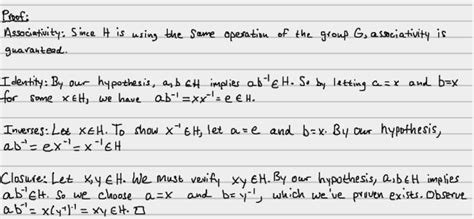 Proof:
Associativity: Since H is using the same operation of the group G, associativity is
guaranteed.
Identity: By our hypothesis, a,b∈H implies ab⁻¹∈H. So by letting a=x and b=x
for some x∈H, we have ab⁻¹=xx⁻¹=e∈H.
Inverses: Let x∈H. To show x⁻¹∈H, let a=e and b=x. By our hypothesis,
ab⁻¹=ex⁻¹=x⁻¹∈H
Closure: Let x,y∈H. We must verify xy∈H. By our hypothesis, a,b∈H implies
ab⁻¹∈H. So we choose a=x and b=y⁻¹, which we've proven exists. Observe
ab⁻¹=x(y⁻¹)⁻¹=xy∈H. □